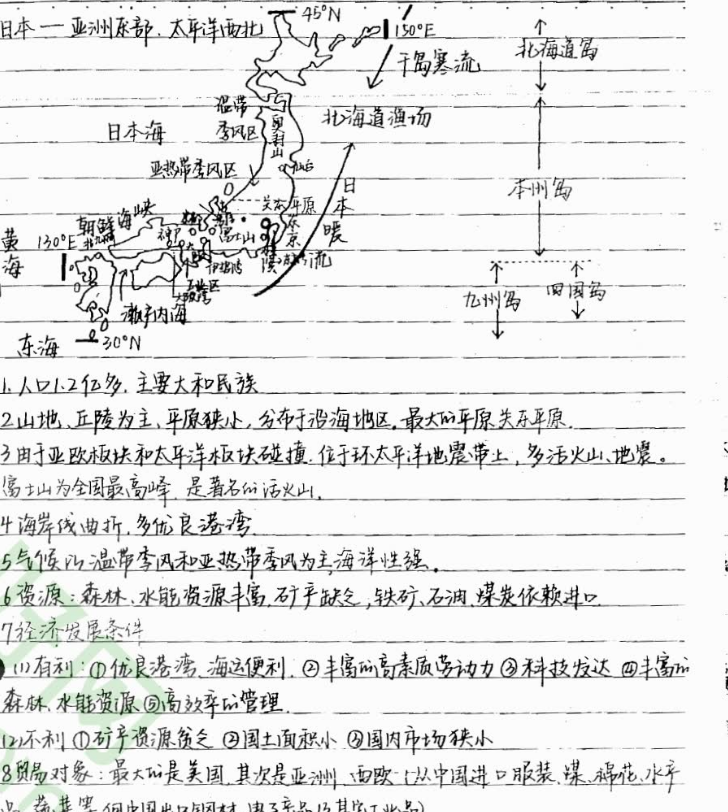 日本 — 亚洲东部、太平洋西北
45°N
150°E
千岛寒流
北海道岛
温带
季风区
奥羽山
北海道渔场
日本海
仙台
亚热带季风区
日本暖流
本州岛
关东平原
东京
朝鲜海峡
黄海
130°E
神户
富士山
横滨
伊势湾
工业区
九州岛
四国岛
濑户内海
东海
30°N
1.人口1.2亿多,主要大和民族
2山地、丘陵为主,平原狭小,分布于沿海地区,最大的平原关东平原.
3由于亚欧板块和太平洋板块碰撞,位于环太平洋地震带上,多活火山、地震。
富士山为全国最高峰,是著名的活火山.
4海岸线曲折,多优良港湾.
5气候以温带季风和亚热带季风为主,海洋性强。
6资源:森林、水能资源丰富,矿产缺乏,铁矿、石油、煤炭依赖进口.
7经济发展条件
(1)有利:①优良港湾、海运便利.②丰富的高素质劳动力③科技发达④丰富的
森林、水能资源⑤高效率的管理.
(2)不利①矿产资源贫乏②国土面积小③国内市场狭小
8贸易对象:最大的是美国,其次是亚洲、西欧(从中国进口服装、煤、棉花、水产